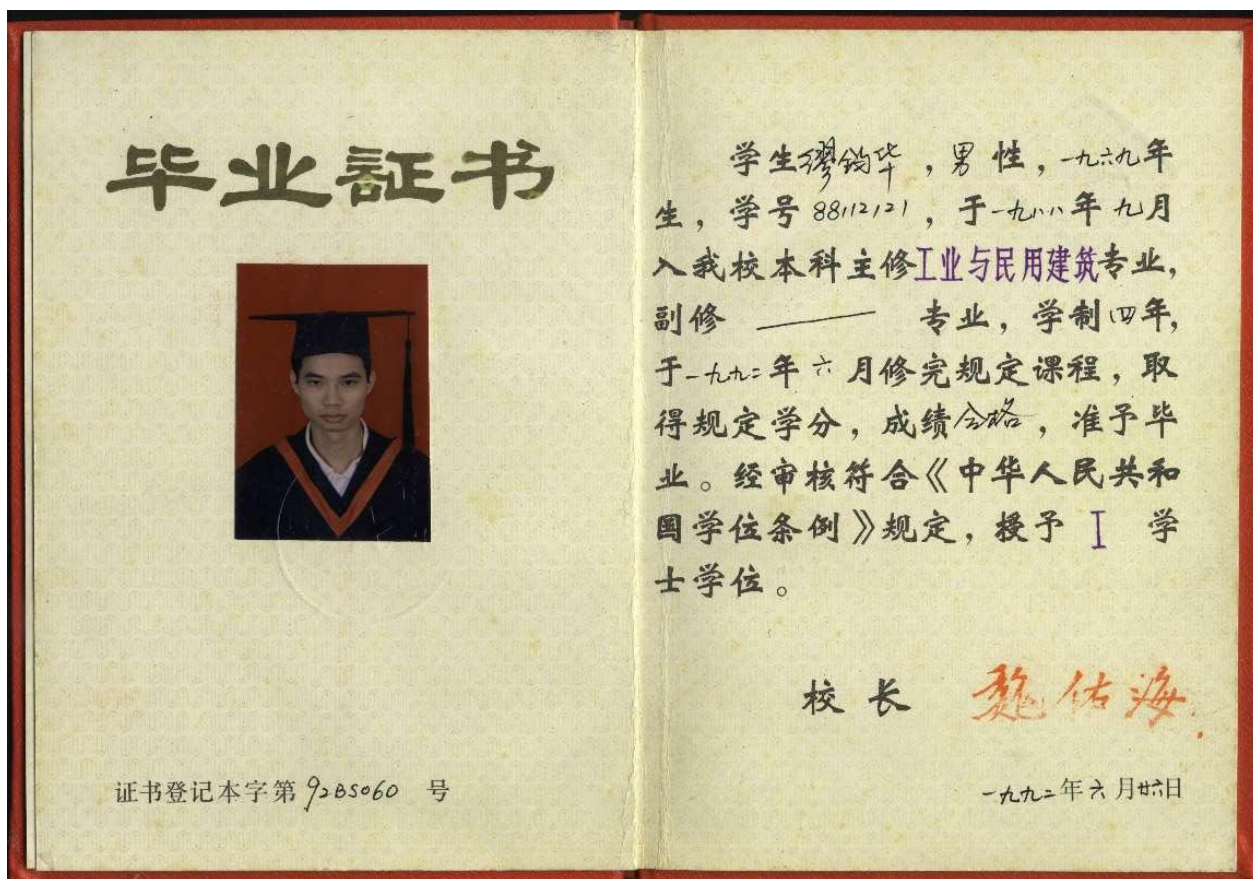 毕业証书
证书登记本字第92BS060 号
学生缪钧华，男性，一九六九年
生，学号88112121，于一九八八年九月
入我校本科主修工业与民用建筑专业，
副修 —— 专业，学制四年，
于一九九二年六月修完规定课程，取
得规定学分，成绩合格，准予毕
业。经审核符合《中华人民共和
国学位条例》规定，授予 工 学
士学位。
校长 魏佑海
一九九二年六月廿六日